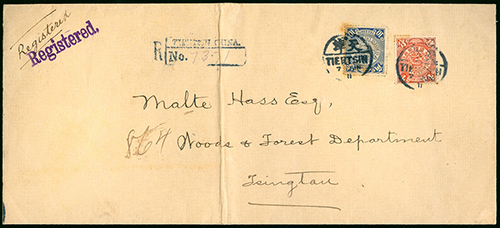 Registered
Registered.
TIENTSIN CHINA.
R No.
天津
TIENTSIN
7
11
天津
7
11
Malte Hass Esq,
864 Woods & Forest Department
Tsingtau